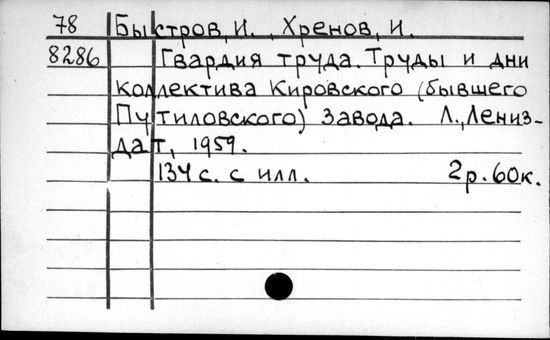 78 Быстров, И. , Хренов, И.
8286 Гвардия труда. Труды и дни
коллектива Кировского (бывшего
Путиловского) завода. Л., Лениз-
дат, 1959.
134 с. с илл. 2р. 60к.